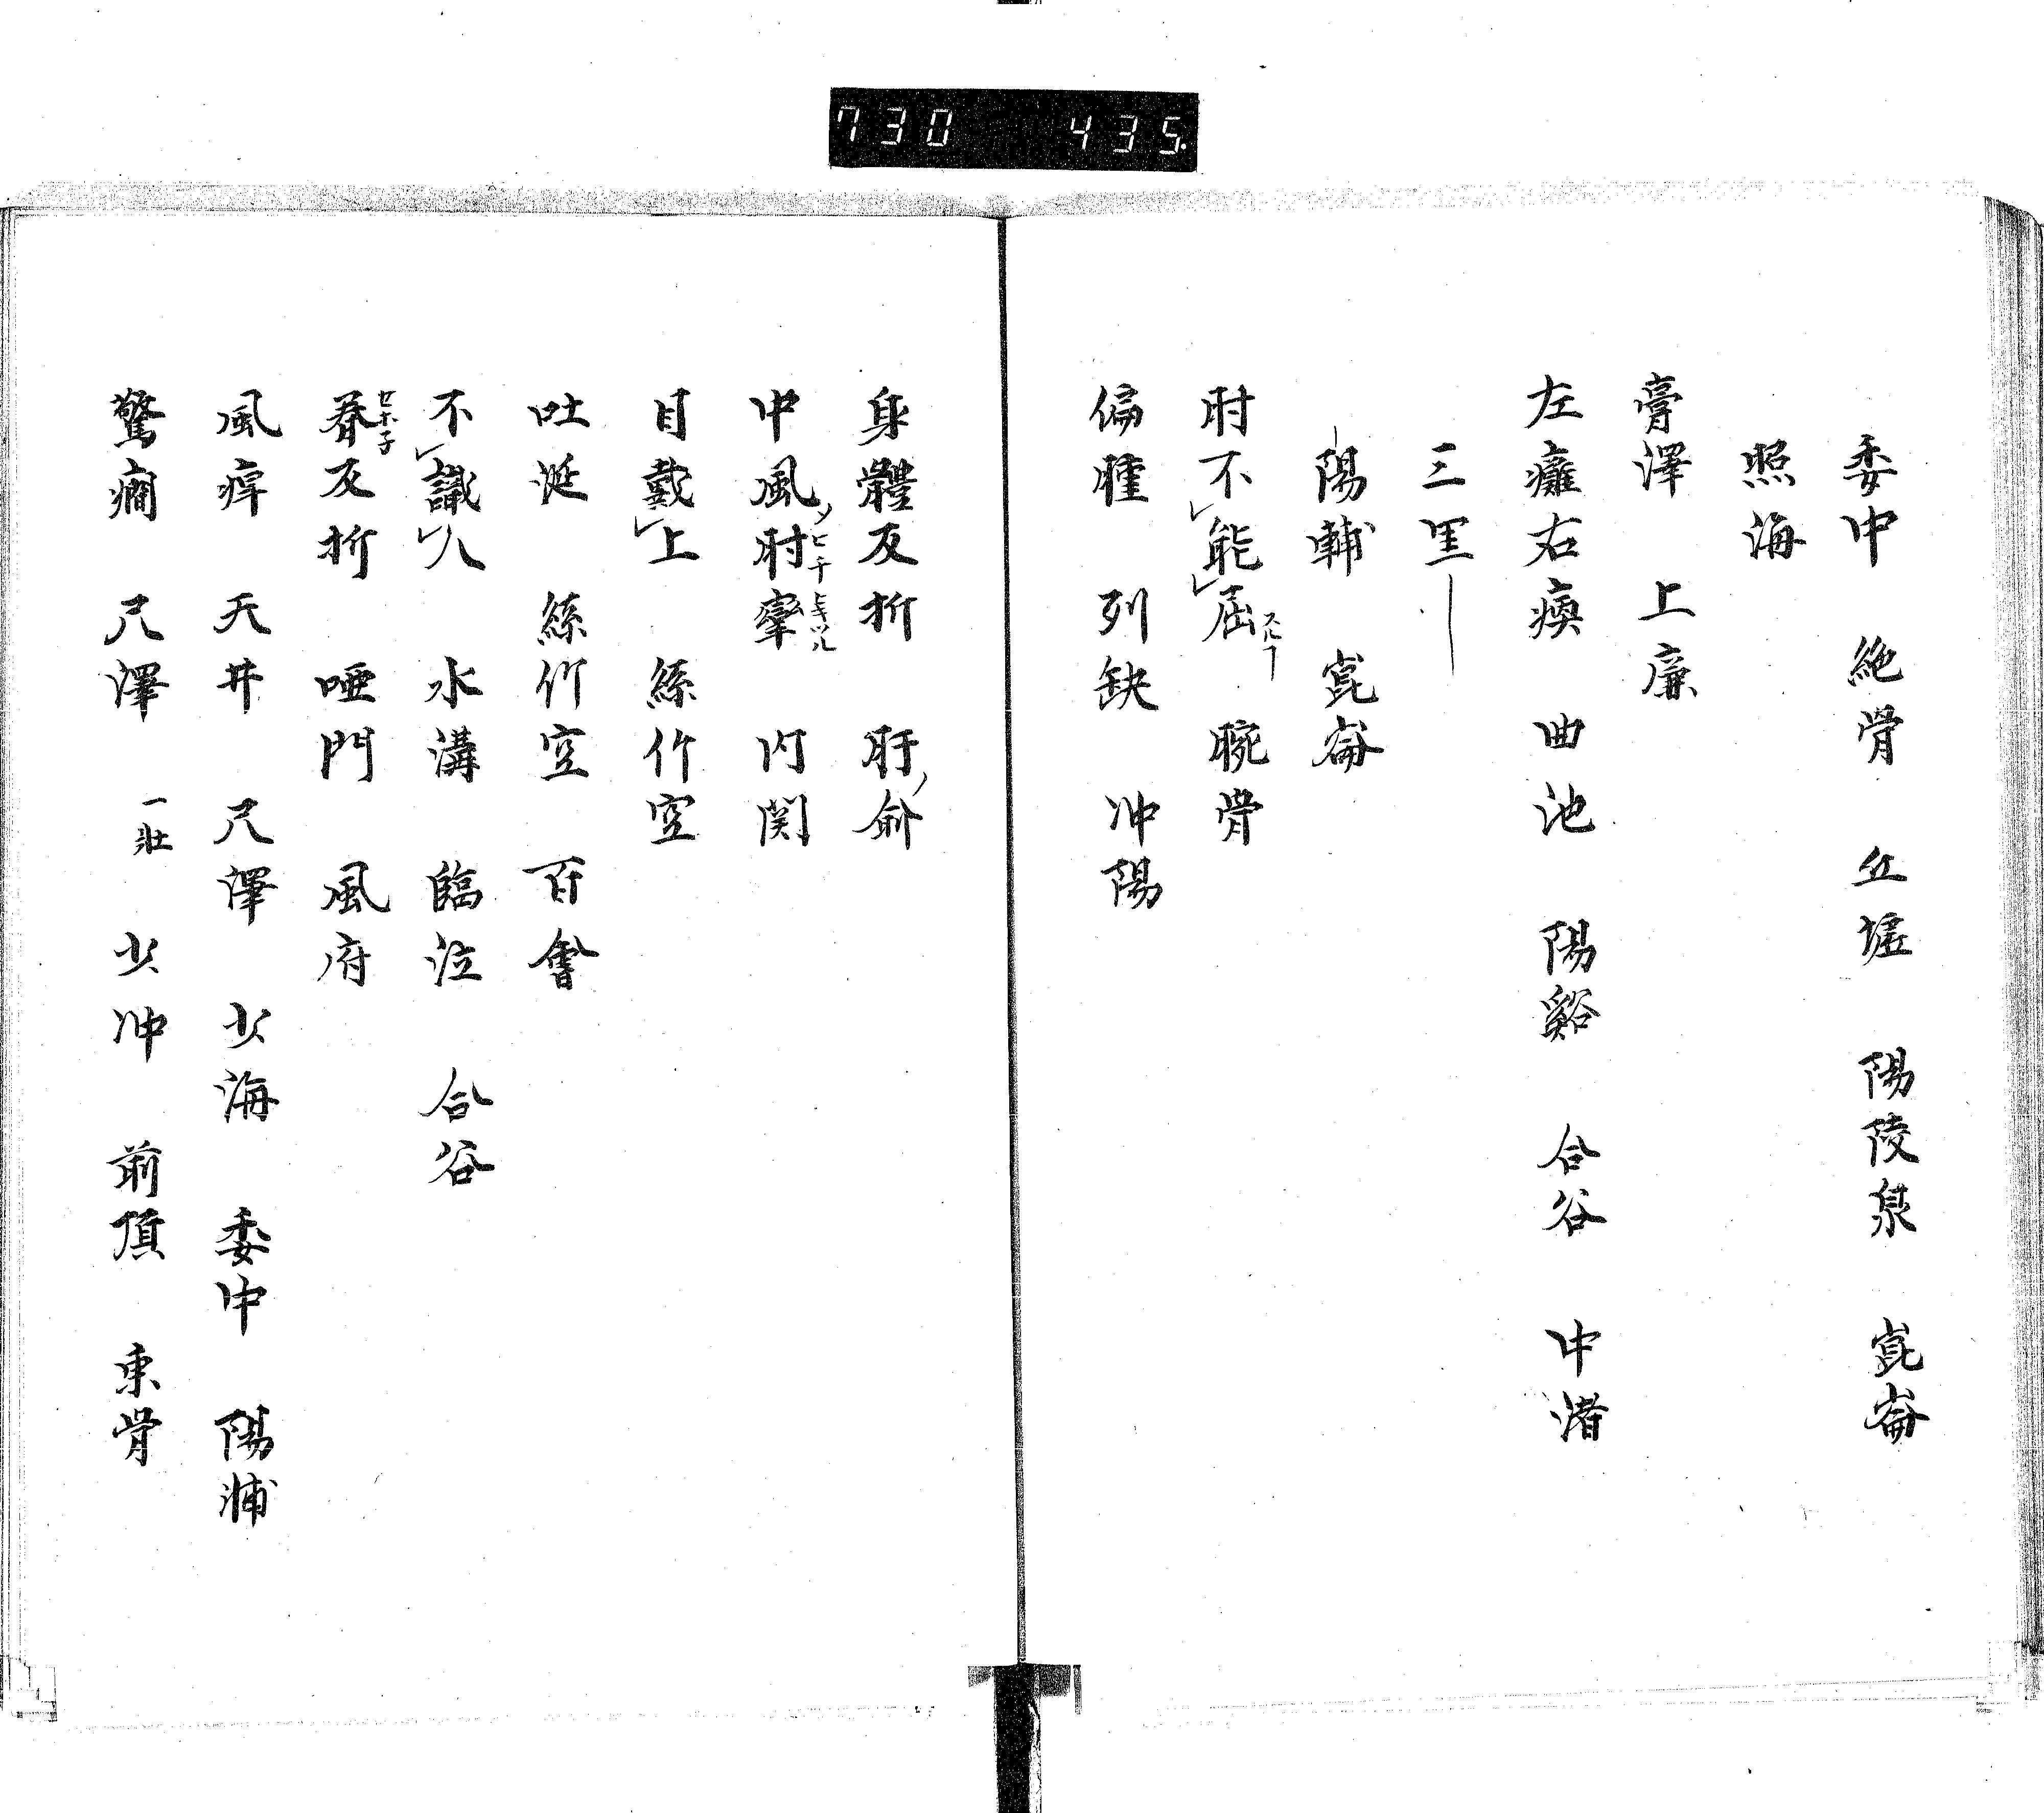 730 435.
委中 絶骨 丘墟 陽陵泉 崑崙
照海
膏澤 上廉
左癱右瘓 曲池 陽谿 合谷 中渚
三里
陽輔 崑崙
肘不能屈 腕骨
偏腫 列缺 冲陽
身體反折 肝俞
中風肘攣 内関
目戴上 絲竹空
吐涎 絲竹空 百會
不識人 水溝 臨泣 合谷
脊反折 唖門 風府
風痺 天井 尺澤 少海 委中 陽浦
驚癇 尺澤 一壯 少冲 前頂 束骨